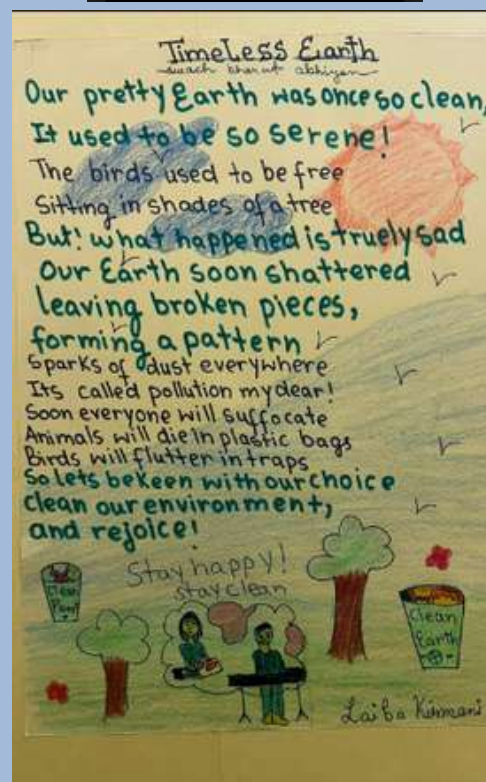 TimeLess Earth
swach bharat abhiyan
Our pretty Earth was once so clean,
It used to be so serene!
The birds used to be free
Sitting in shades of a tree
But! what happened is truely sad
Our Earth soon shattered
leaving broken pieces,
forming a pattern
Sparks of dust everywhere
Its called pollution my dear!
Soon everyone will suffocate
Animals will die in plastic bags
Birds will flutter in traps
So lets be keen with our choice
clean our environment,
and rejoice!
Stay happy!
stay clean
Clean
Clean
Earth
Laiba Kirmani